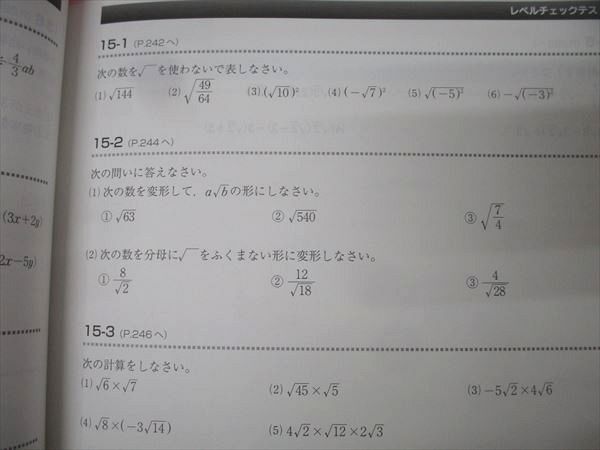 レベルチェックテス
15-1 (P.242へ)
次の数を√ を使わないで表しなさい。
(1) √144 (2) √49/64 (3) (√10)² (4) (-√7)² (5) √(-5)² (6) -√(-3)²
15-2 (P.244へ)
次の問いに答えなさい。
(1) 次の数を変形して，a√bの形にしなさい。
① √63 ② √540 ③ √7/4
(2) 次の数を分母に√ をふくまない形に変形しなさい。
① 8/√2 ② 12/√18 ③ 4/√28
15-3 (P.246へ)
次の計算をしなさい。
(1) √6×√7 (2) √45×√5 (3) -5√2×4√6
(4) √8×(-3√14) (5) 4√2×√12×2√3
4/3 ab
(3x+2y)
2x-5y)